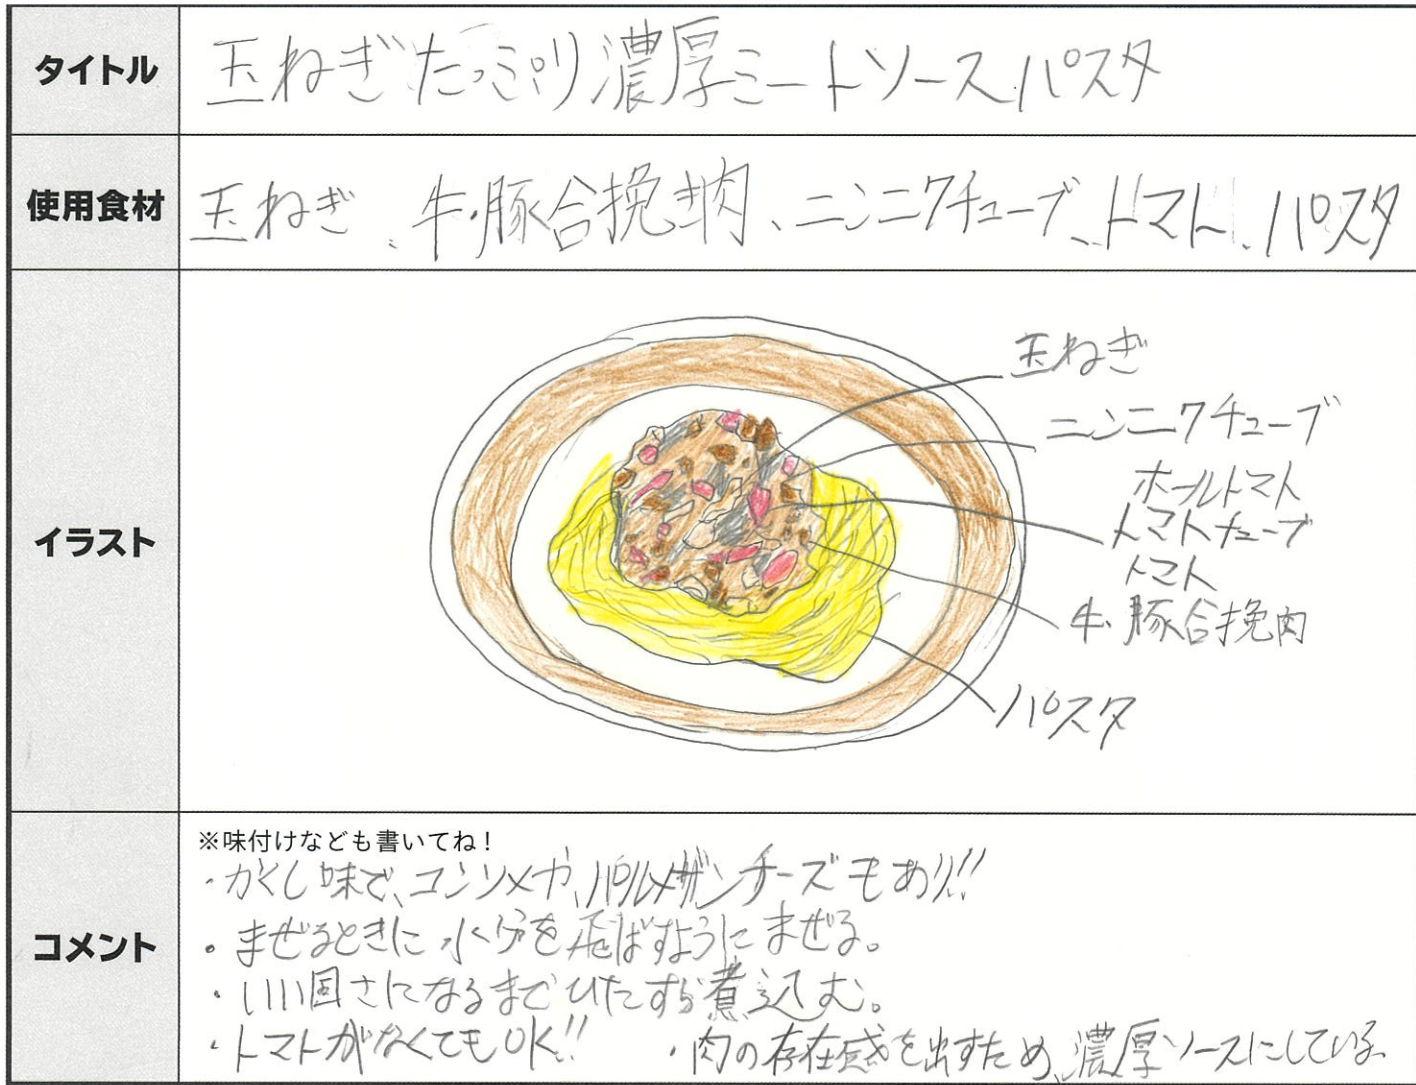 タイトル
玉ねぎたっぷり濃厚ミートソースパスタ
使用食材
玉ねぎ、牛・豚合挽き肉、ニンニクチューブ、トマト、パスタ
イラスト
玉ねぎ
ニンニクチューブ
ホールトマト
トマトチューブ
トマト
牛・豚合挽肉
パスタ
コメント
※味付けなども書いてね！
・かくし味で、コンソメや、パルメザンチーズもあり!!
・まぜるときに水分を飛ばすようにまぜる。
・いい固さになるまでひたすら煮込む。
・トマトがなくてもOK!! ・肉の存在感を出すため、濃厚ソースにしている。